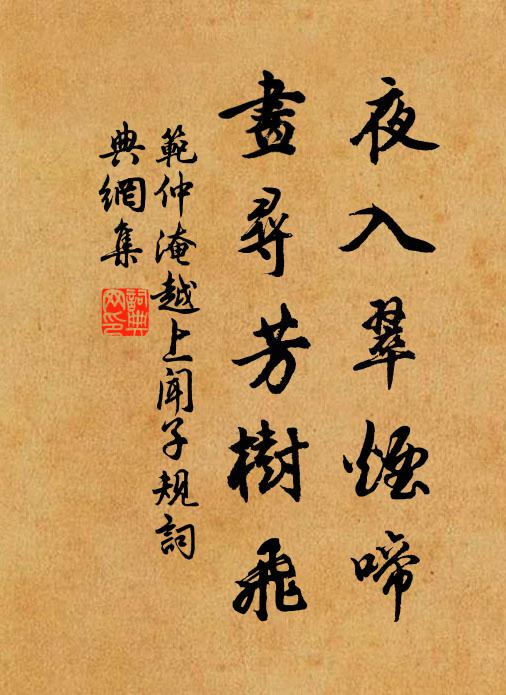 夜入翠煙啼
晝尋芳樹飛
範仲淹越上聞子規詞
典網集
詞典
网印